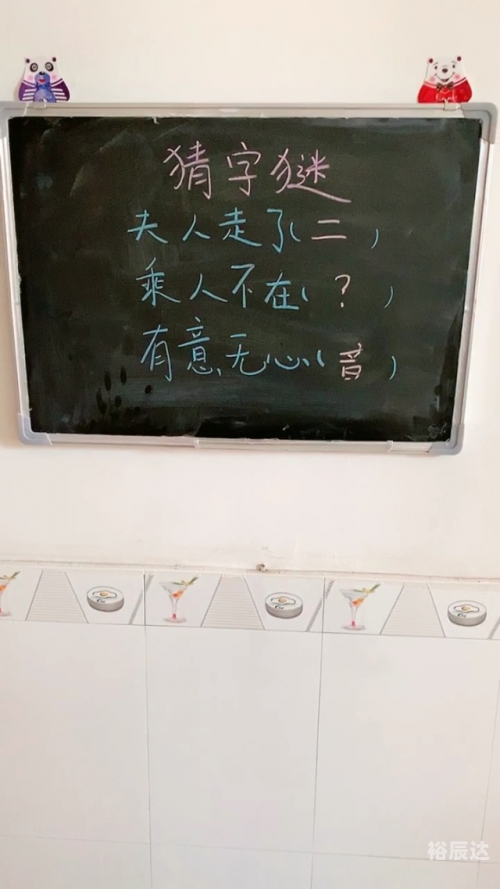 猜字谜
夫人走了(二)
乘人不在(?)
有意无心(音)
裕辰达